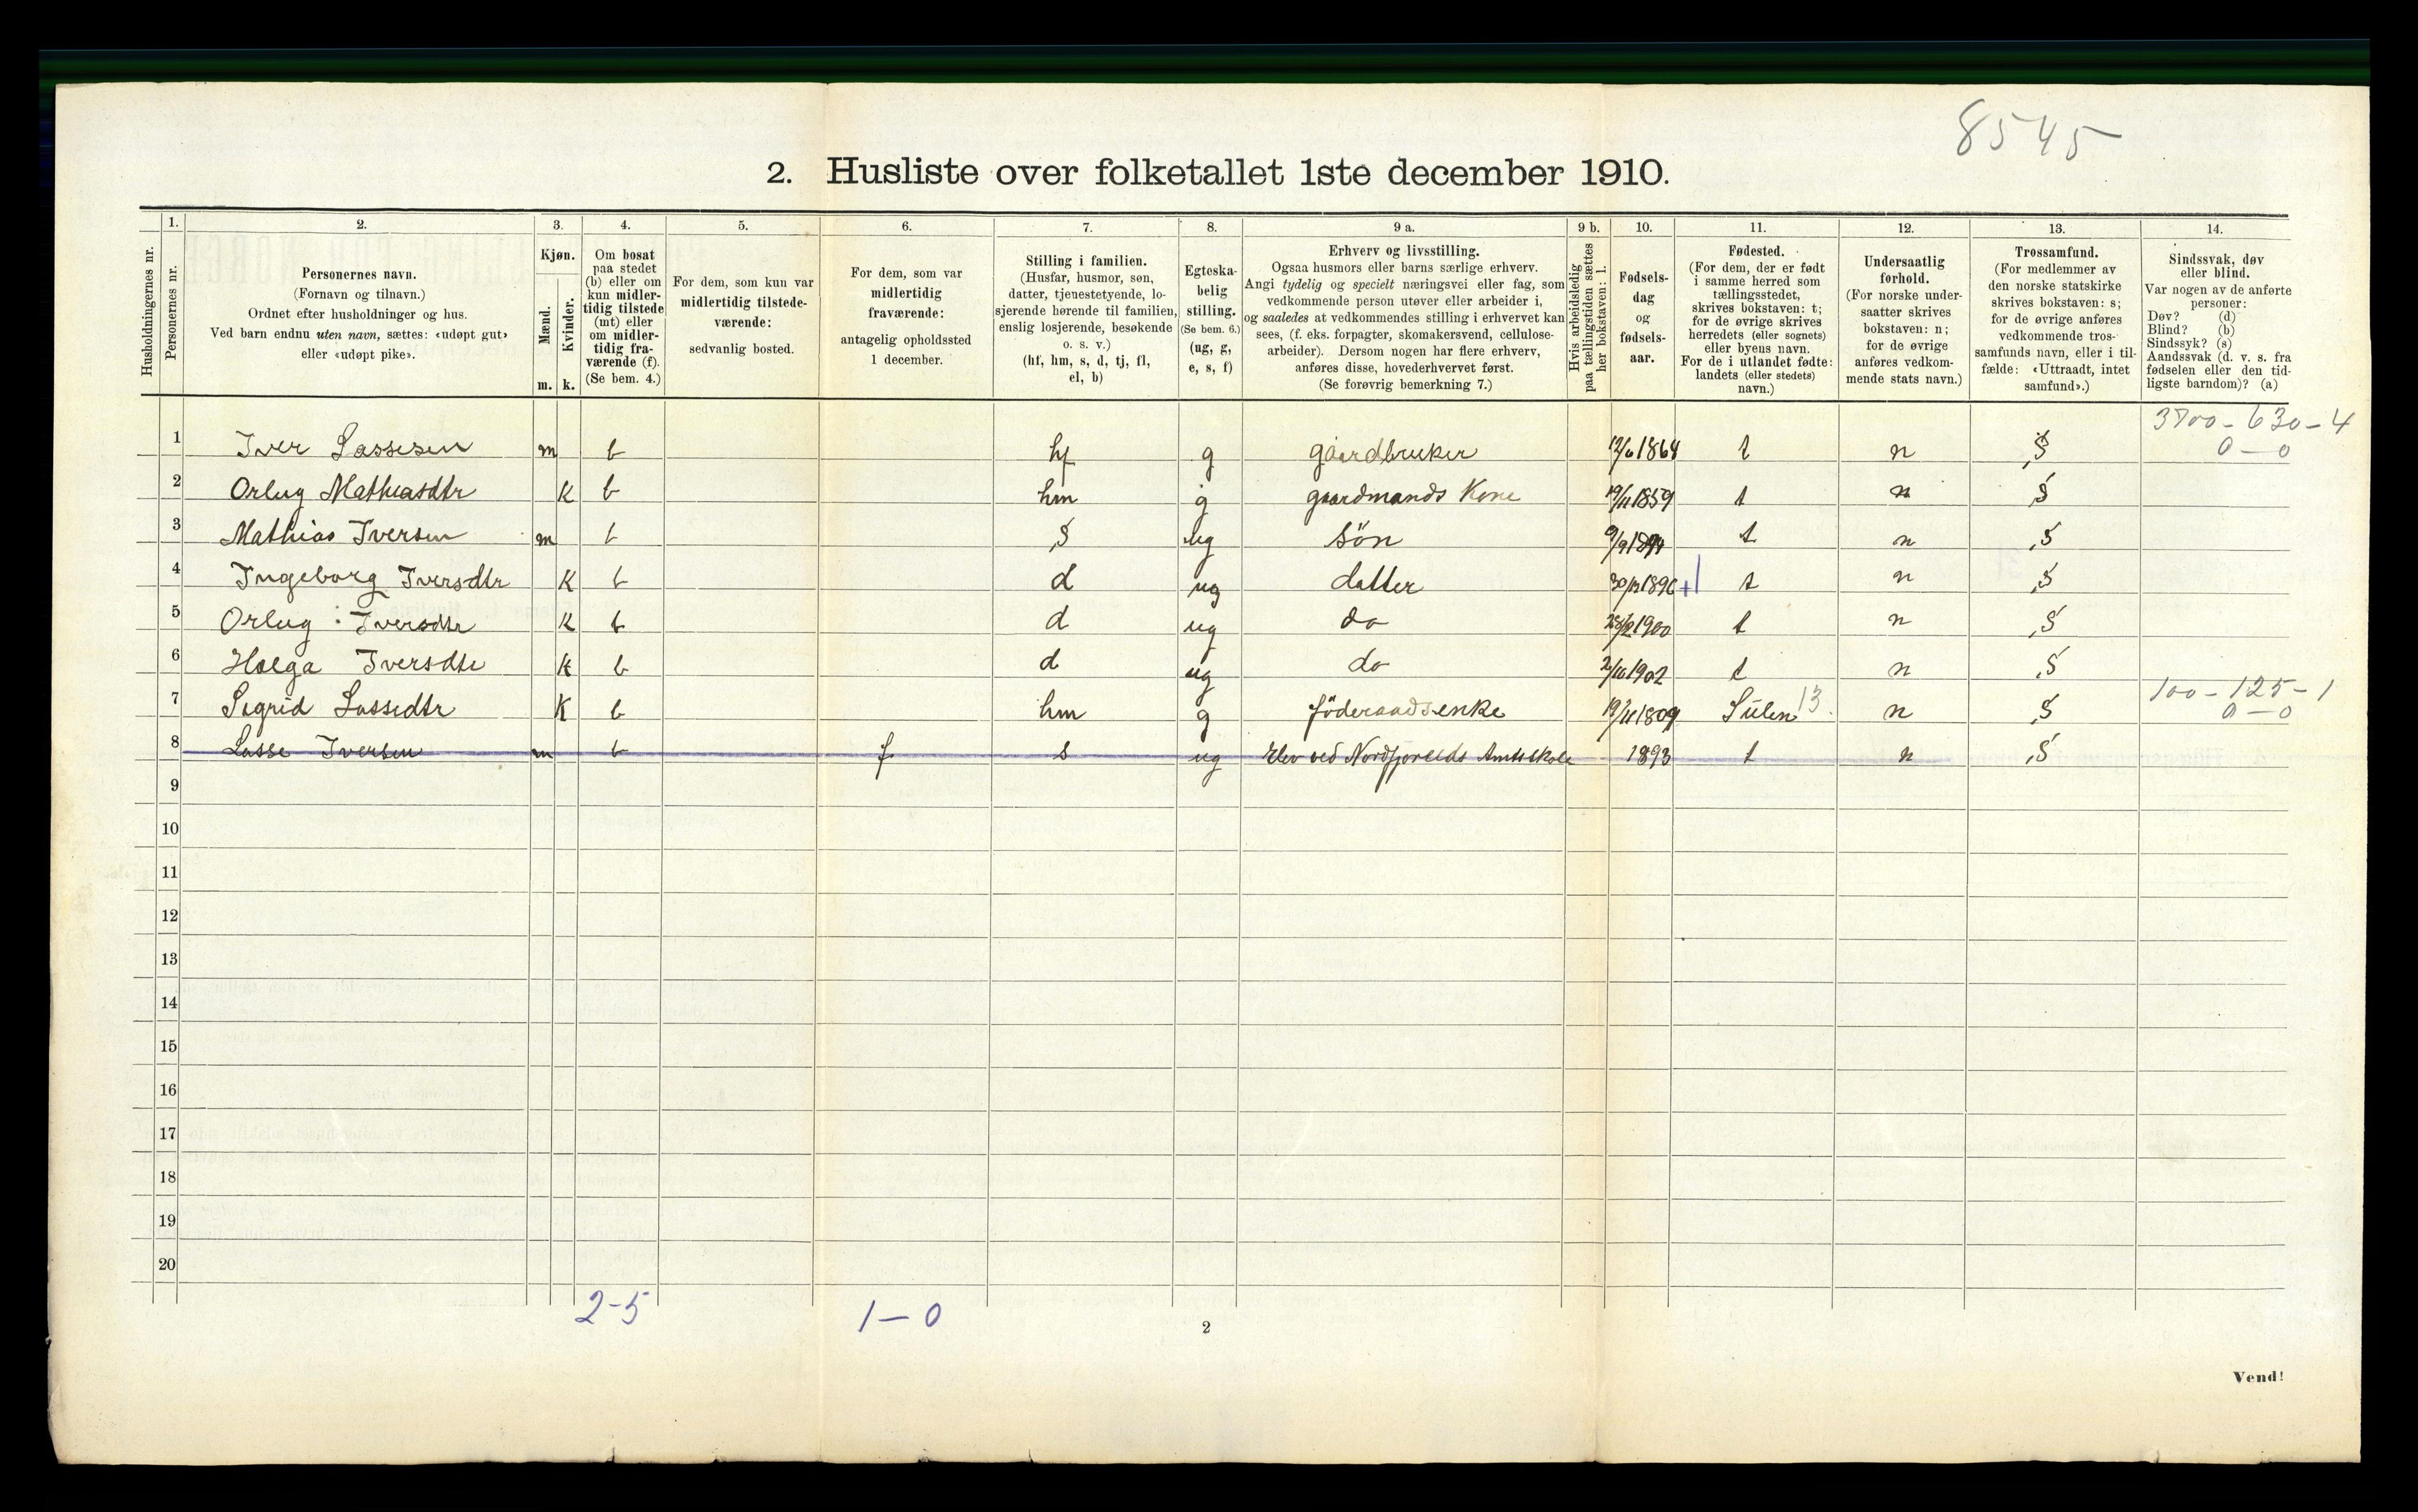 8545
2. Husliste over folketallet 1ste december 1910.
Husholdningernes nr.
1. Personernes nr.
2. Personernes navn. (Fornavn og tilnavn.) Ordnet efter husholdninger og hus. Ved barn endnu uten navn, sættes: «udøpt gut» eller «udøpt pike».
3. Kjøn. Mænd. m. Kvinder. k.
4. Om bosat paa stedet (b) eller om kun midlertidig tilstede (mt) eller om midlertidig fraværende (f). (Se bem. 4.)
5. For dem, som kun var midlertidig tilstedeværende: sedvanlig bosted.
6. For dem, som var midlertidig fraværende: antagelig opholdssted 1 december.
7. Stilling i familien. (Husfar, husmor, søn, datter, tjenestetyende, losjerende hørende til familien, enslig losjerende, besøkende o. s. v.) (hf, hm, s, d, tj, fl, el, b)
8. Egteskabelig stilling. (Se bem. 6.) (ug, g, e, s, f)
9 a. Erhverv og livsstilling. Ogsaa husmors eller barns særlige erhverv. Angi tydelig og specielt næringsvei eller fag, som vedkommende person utøver eller arbeider i, og saaledes at vedkommendes stilling i erhvervet kan sees, (f. eks. forpagter, skomakersvend, cellulosearbeider). Dersom nogen har flere erhverv, anføres disse, hovederhvervet først. (Se forøvrig bemerkning 7.)
9 b. Hvis arbeidsledig paa tællingstiden sættes her bokstaven: l.
10. Fødselsdag og fødselsaar.
11. Fødested. (For dem, der er født i samme herred som tællingsstedet, skrives bokstaven: t; for de øvrige skrives herredets (eller sognets) eller byens navn. For de i utlandet fødte: landets (eller stedets) navn.)
12. Undersaatlig forhold. (For norske undersaatter skrives bokstaven: n; for de øvrige anføres vedkommende stats navn.)
13. Trossamfund. (For medlemmer av den norske statskirke skrives bokstaven: s; for de øvrige anføres vedkommende trossamfunds navn, eller i tilfælde: «Uttraadt, intet samfund».)
14. Sindssvak, døv eller blind. Var nogen av de anførte personer: Døv? (d) Blind? (b) Sindssyk? (s) Aandssvak (d. v. s. fra fødselen eller den tidligste barndom)? (a)
3700-630-4
1 Iver Lassesen m b hf g gaardbruker 1864 t n S 0-0
2 Orlug Mathiasdtr K b hm g gaardmands Kone 19/11 1859 t n S
3 Mathias Iversen m b S ug Sön 9/9 t n S
4 Ingeborg Iversdtr K b d ug datter 30/12 1896 + t n S
5 Orlug Iversdtr K b d ug do 1900 t n S
6 Helga Iversdtr K b d ug do 1902 t n S
100-125-1
7 Sigrid Lassedtr K b hm g föderaadsenke Sulen 13. n S 0-0
8 Lasse Iversen m b f s ug Elev ved Nordfjoreids Amtsskole 1893 t n S
9
10
11
12
13
14
15
16
17
18
19
20
2-5 1-0
2
Vend!